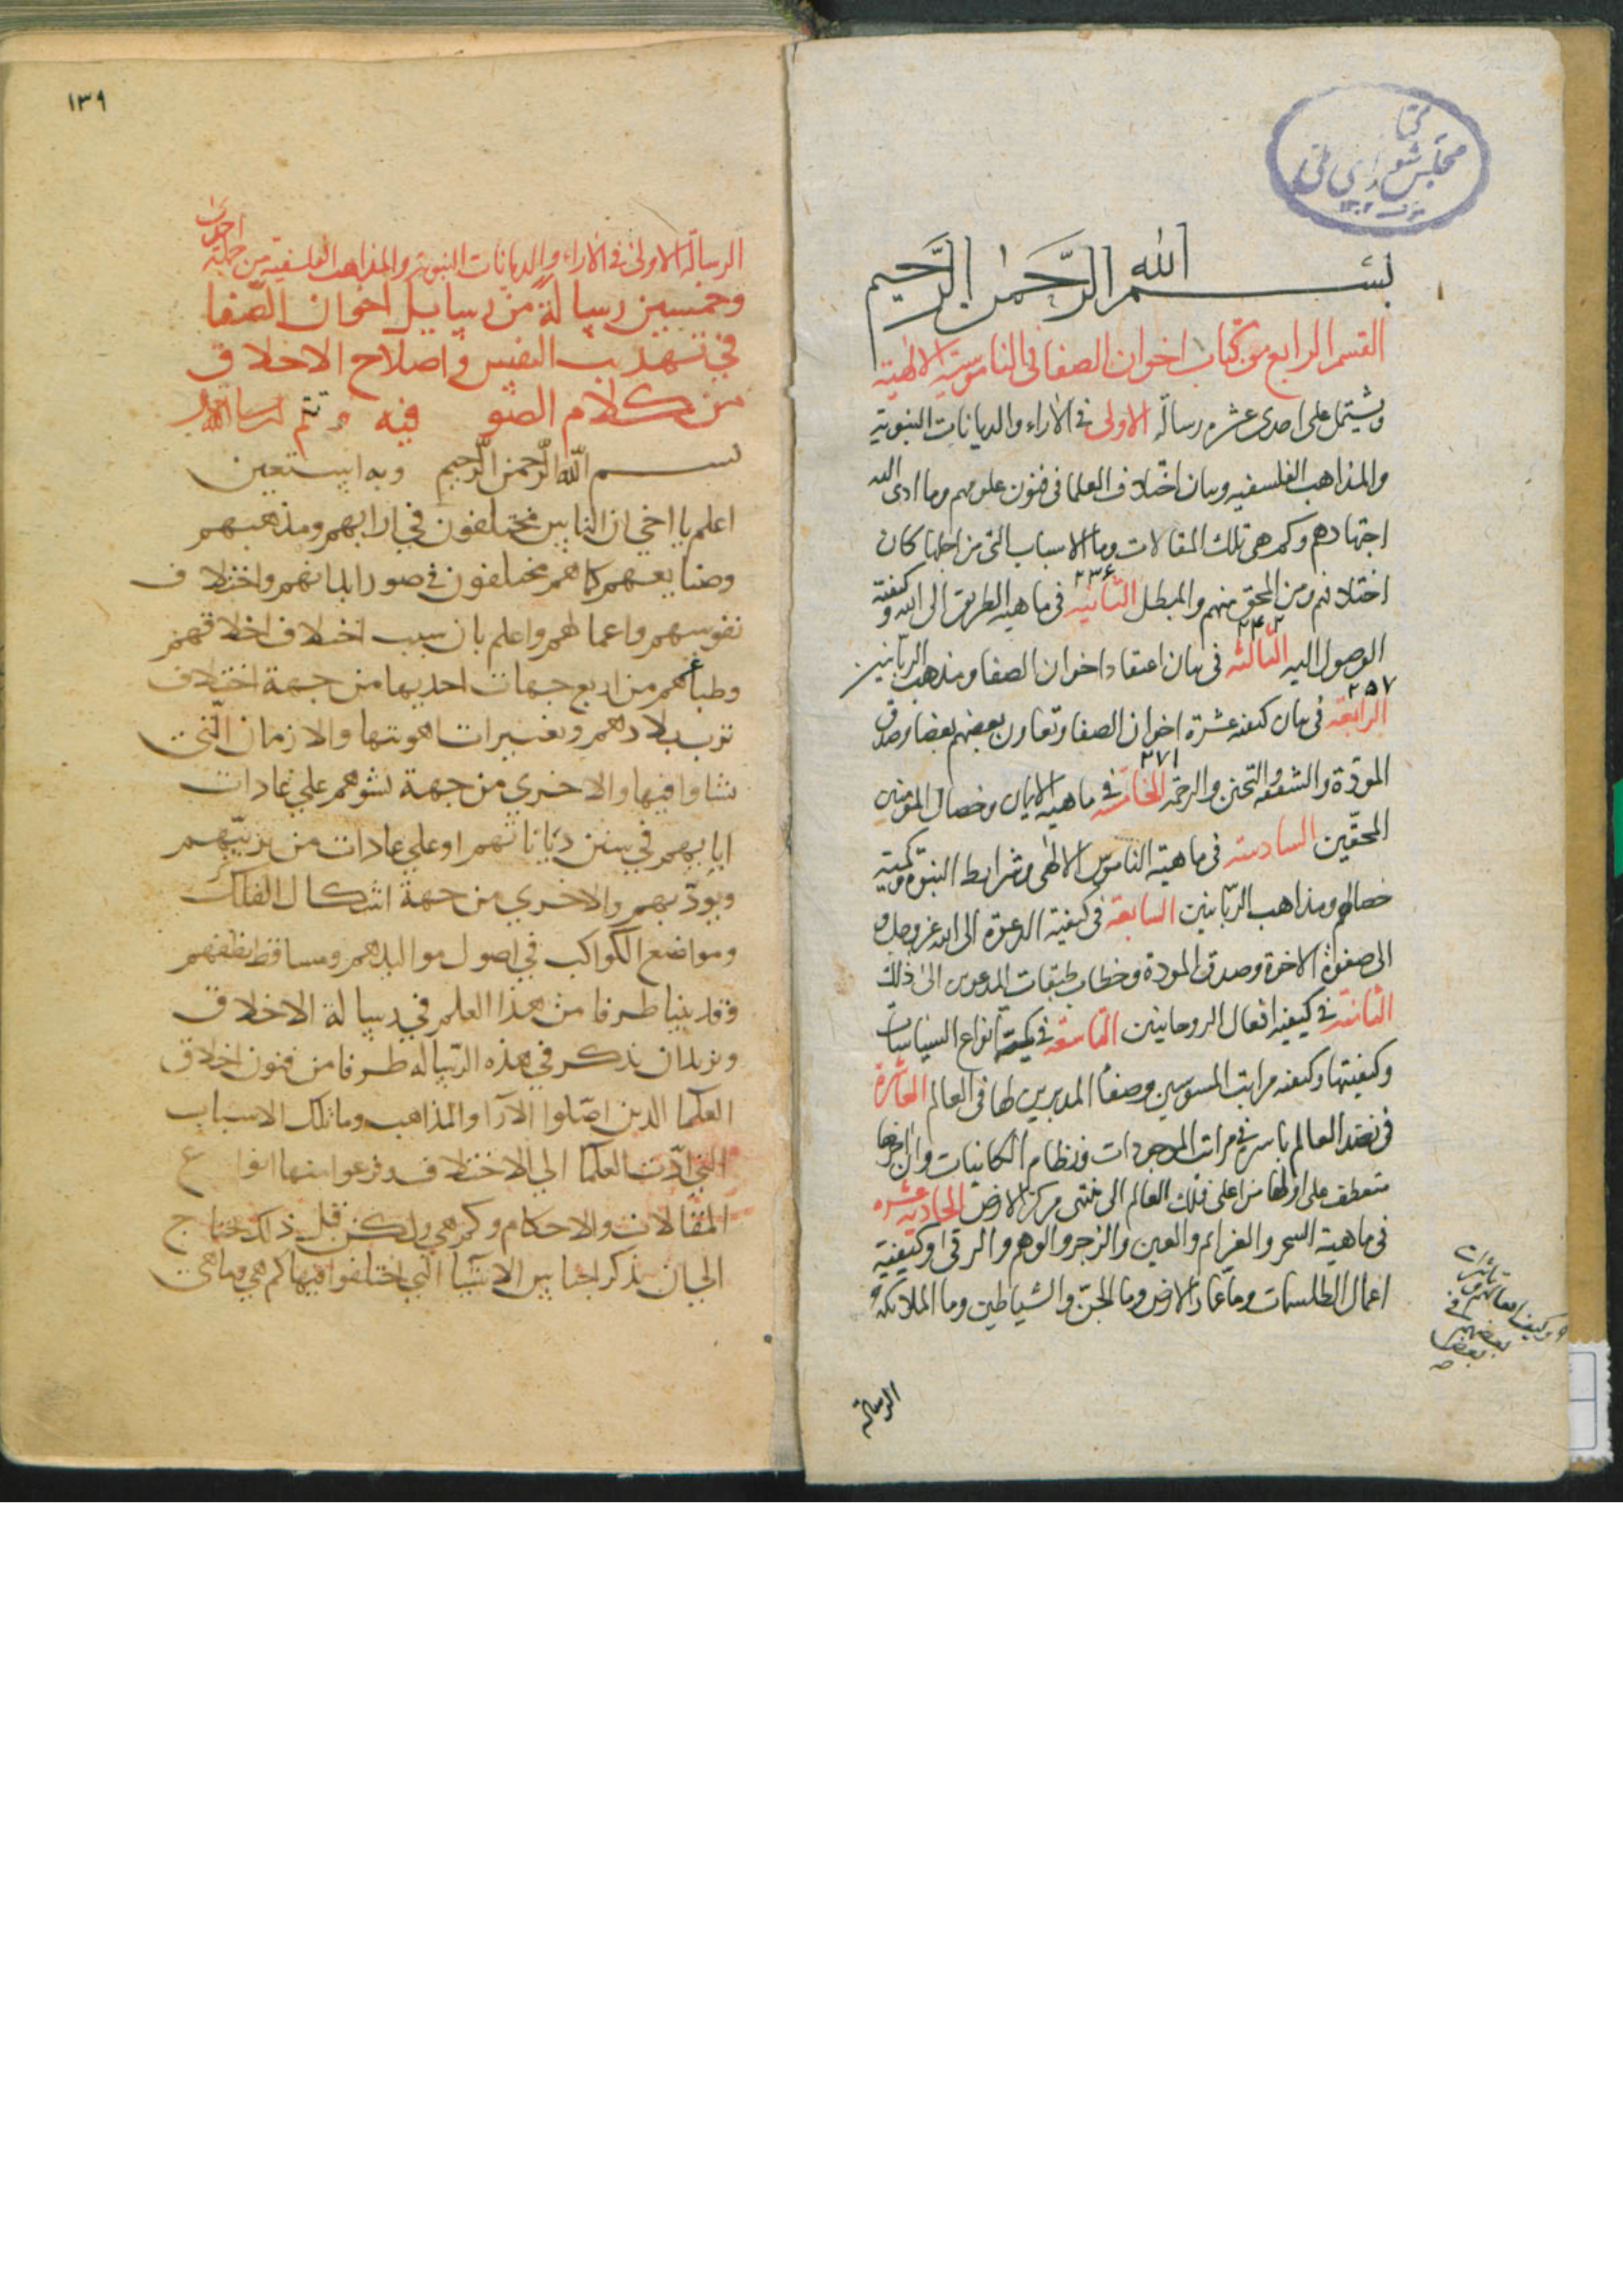 بسم الله الرحمن الرحيم
القسم الرابع من كتاب اخوان الصفا فى الناموسية الالهية
ويشتمل على احدى عشره رسالة الاولى فى الاراء والديانات النبوية
والمذاهب الفلسفيه وبيان اختلاف العلما فى فنون علومهم وما ادى اليه
اجتهادهم وكم هى تلك المقالات وما الاسباب التى من اجلها كان
اختلافهم ومن المحق منهم والمبطل الثانية فى ماهية الطريق الى الله وكيفية
٢٣۶
الوصول اليه الثالثه فى بيان اعتقاد اخوان الصفا ومذهب الربانيين
٢۴٢
الرابعة فى بيان كيفيه عشرة اخوان الصفا وتعاون بعضهم بعضا وصدق
٢٥٧
المودة والشفقه والتحنن والرحمة الخامسه فى ماهية الايمان وخصال المؤمنين
٢٧١
المحقين السادسة فى ماهية الناموس الالهى وشرايط النبوة وكمية
خصالهم ومذاهب الربانيين السابعة فى كيفية الدعوة الى الله عز وجل و
الى صفوة الاخوة وصدق المودة وخطاب طبقات المدعوين الى ذلك
الثامنة فى كيفية افعال الروحانيين التاسعة فى كمية انواع السياسات
وكيفيتها وكيفيه مراتب المسوسين وصفا المدبرين لها فى العالم العاشرة
فى نضد العالم باسره فى مراتب الموجودات ونظام الكاينات وان اخرها
منعطف على اولها من اعلى فلك العالم الى منتهى مركز الارض الحادية عشره
فى ماهية السحر والعزايم والعين والزجر والوهم والرقى وكيفية
اعمال الطلسمات وما عمار الارض وما الجن والشياطين وما الملائكة
وكيف افعالهم و
تاثيرات
بعضهم فى
بعض
الرسالة
١٣٩
الرسالة الاولى فى الاراء والديانات النبوية والمذاهب الفلسفية من جملة احدى
وخمسين رسالة من رسايل اخوان الصفا
في تهذيب النفس واصلاح الاخلاق
من كلام الصوفيه
بسم الله الرحمن الرحيم وبه استعين
اعلم يا اخي ان الناس مختلفون في ارايهم ومذهبهم
وصنايعهم كما هم مختلفون في صور ابدانهم واختلاف
نفوسهم واعمالهم واعلم بان سبب اختلاف اخلاقهم
وطباعهم من اربع جهات احديها من جهة اختلاف
ترب بلادهم وتغييرات اهويتها والازمان التي
نشاوا فيها والاخري من جهة نشوهم علي عادات
ابايهم في سنن دياناتهم او علي عادات من يربيهم
ويودبهم والاخري من جهة اشكال الفلك
ومواضع الكواكب في اصول مواليدهم ومساقط نطفهم
وقد بينا طرفا من هذا العلم في رسالة الاخلاق
ونريد ان نذكر في هذه الرسالة طرفا من فنون اخلاق
العلما الذين اصلوا الارا والمذاهب وما تلك الاسباب
التي ادت العلما الي الاختلاف فرعوا منها انواع
المقالات والاحكام وكم هي ولكن قبل ذلك نحتاج
الي ان نذكر اجناس الاشيا التي اختلفوا فيها كم هي وما هي